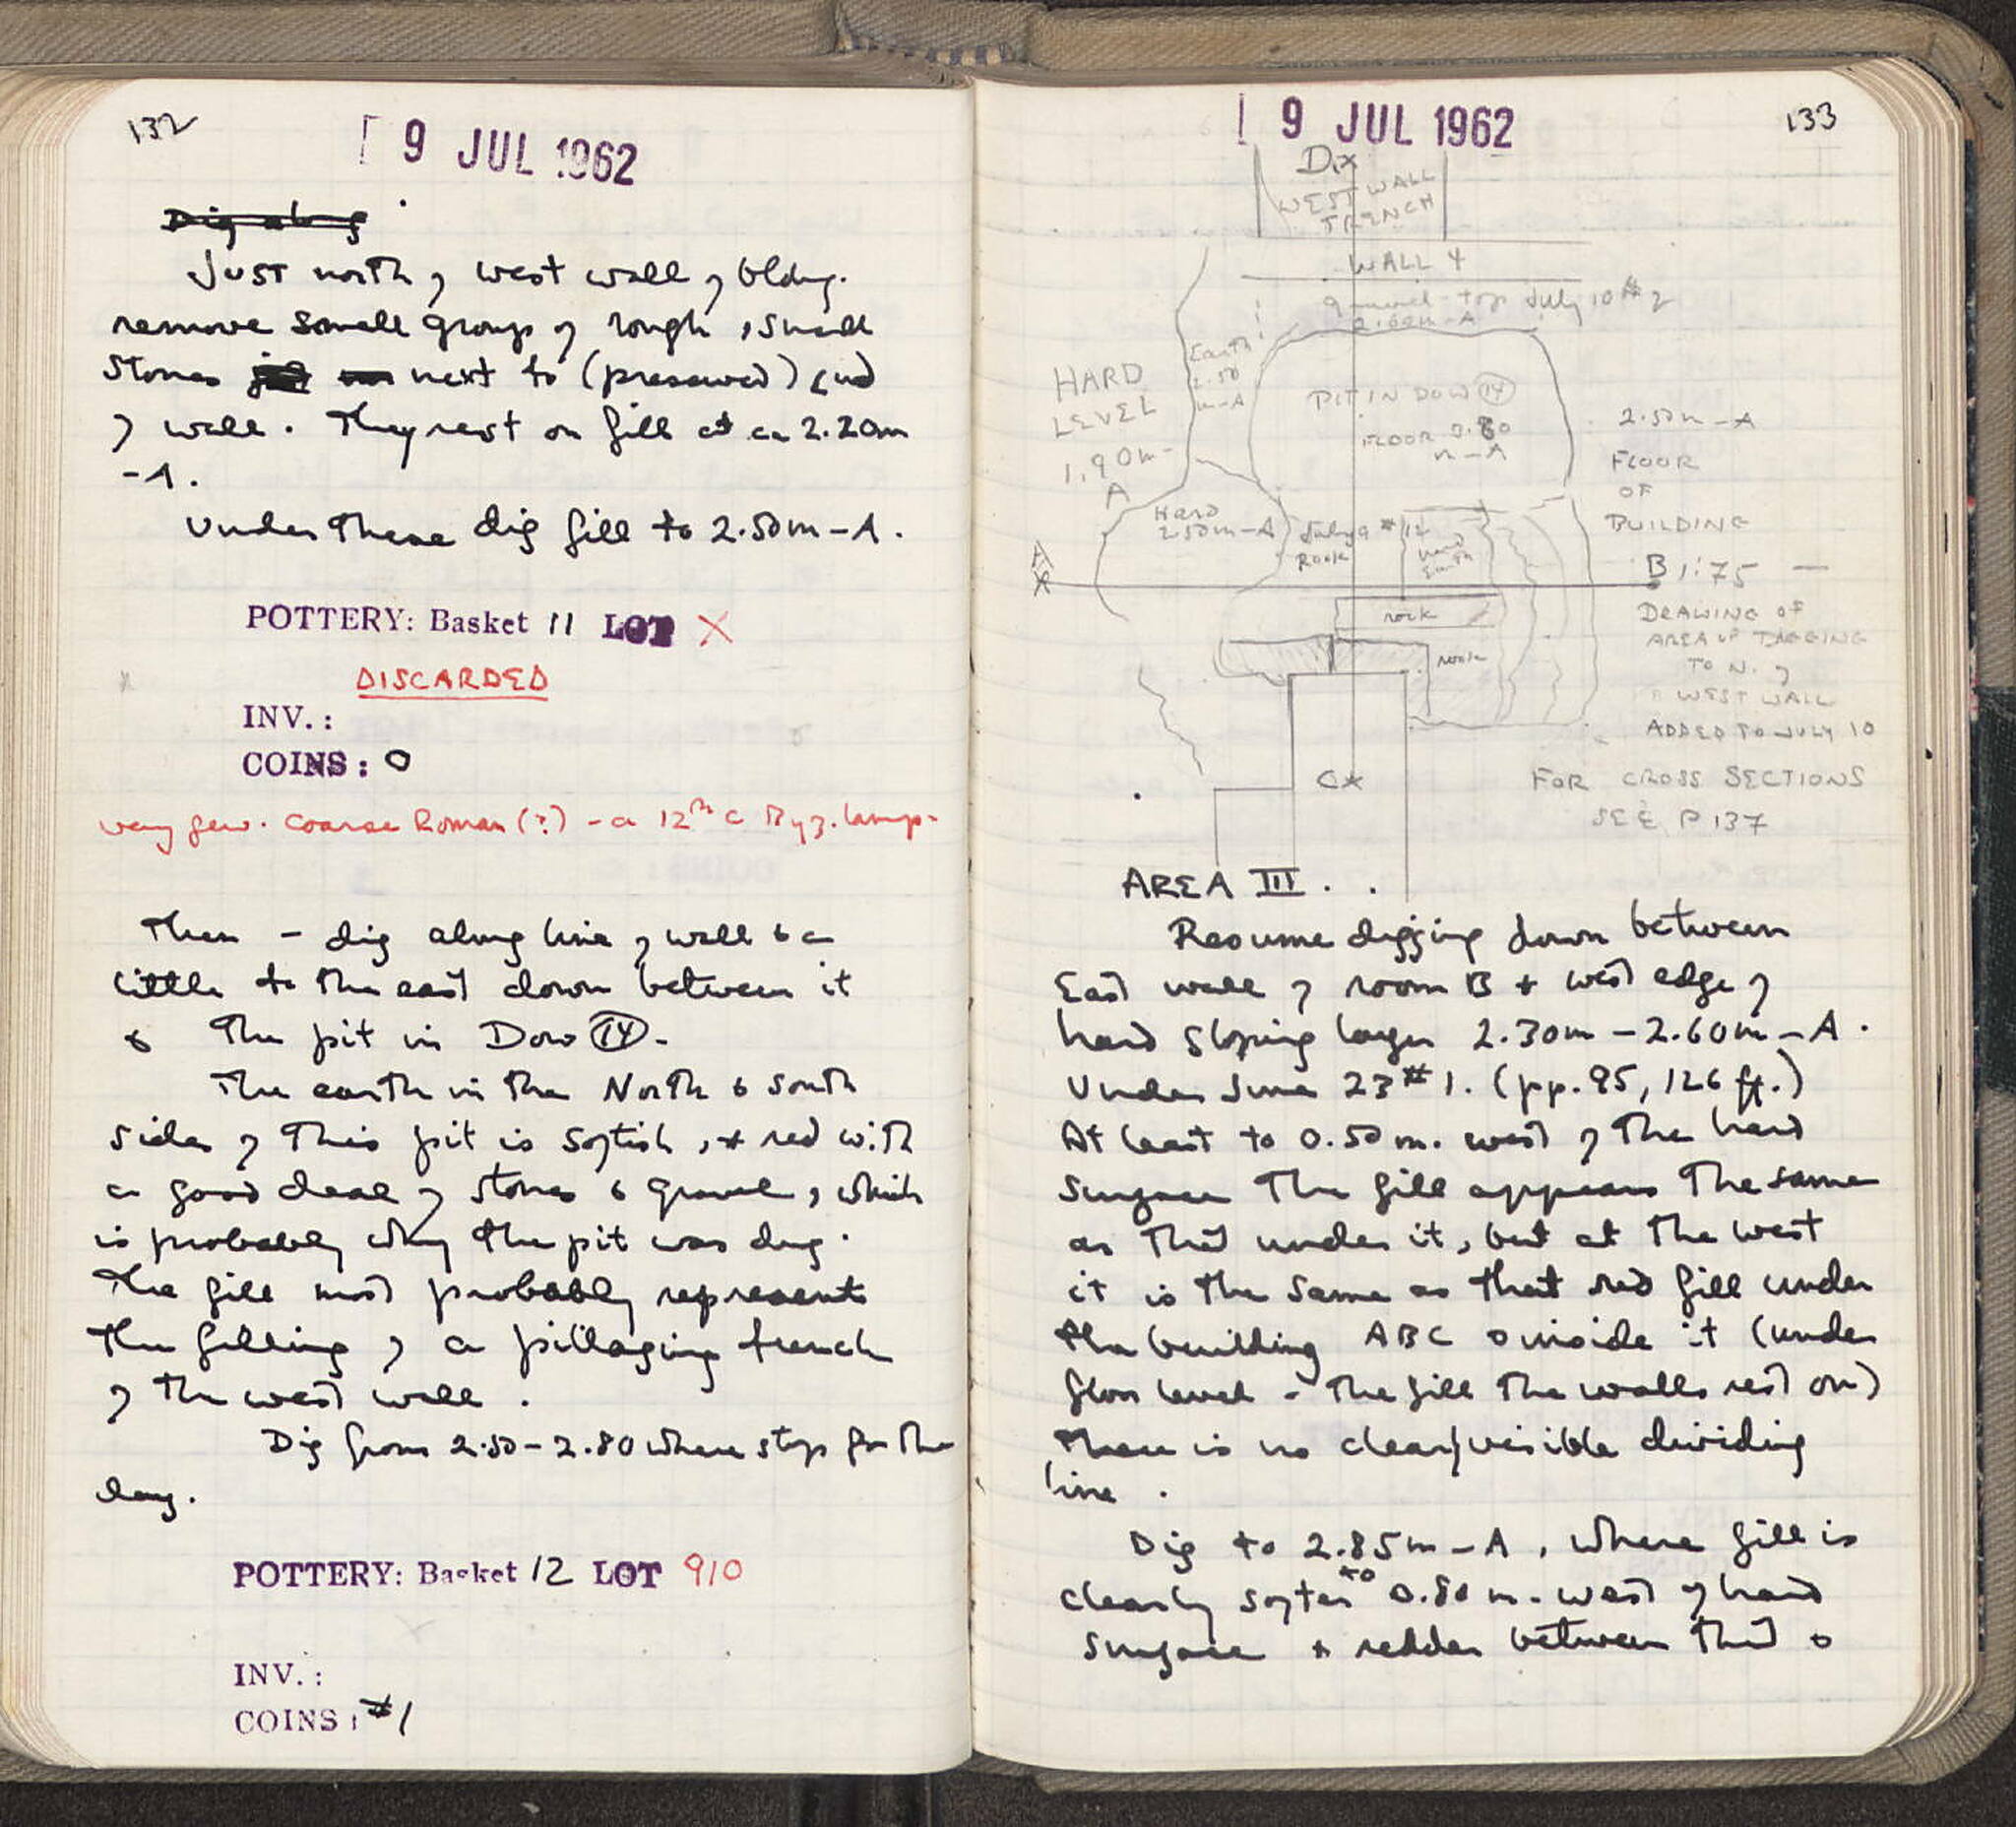 132
9 JUL 1962
Dig along
Just north of west wall of bldg.
remove small group of rough, small
stones next to (preserved) end
of wall. They rest on fill at ca 2.20m
-A.
Under these dig fill to 2.50m-A.
POTTERY: Basket 11 LOT X
DISCARDED
INV.:
COINS: 0
very few. coarse Roman (?) - a 12th c Byz. lamp-
Then - dig along line of wall & a
little to the east down between it
& the pit in Dow 14.
The earth in the North & South
sides of this pit is softish, & red with
a good deal of stones & gravel, which
is probably why the pit was dug.
The fill most probably represents
the filling of a pillaging trench
of the west wall.
Dig from 2.50-2.80 where stop for the
day.
POTTERY: Basket 12 LOT 910
INV.:
COINS: #1
133
9 JUL 1962
Dx
WEST WALL
TRENCH
WALL 4
gravel-top July 10 #2
2.60m-A
Earth
2.50
m-A
HARD
LEVEL
1.90m-
A
PIT IN DOW 14
FLOOR
m-A
2.50m-A
FLOOR
OF
BUILDING
Hard
2.50m-A
July 9 #12
Rook
Hard
Earth
A
x
B 1:75
rock
DRAWING OF
AREA OF DIGGING
TO N. of
WEST WALL
ADDED TO JULY 10
rock
Cx
FOR CROSS SECTIONS
SEE P 137
AREA III.
Resume digging down between
East wall of room B & west edge of
hard sloping layer 2.30m-2.60m-A.
Under June 23 #1. (pp. 95, 126 ff.)
At least to 0.50m. west of the hard
surface the fill appears the same
as that under it, but at the west
it is the same as that red fill under
the building ABC & inside it (under
floor level - the fill the walls rest on)
There is no clear/visible dividing
line.
Dig to 2.85m-A, where fill is
clearly softer to 0.80 m. west of hard
surface & redder between that &